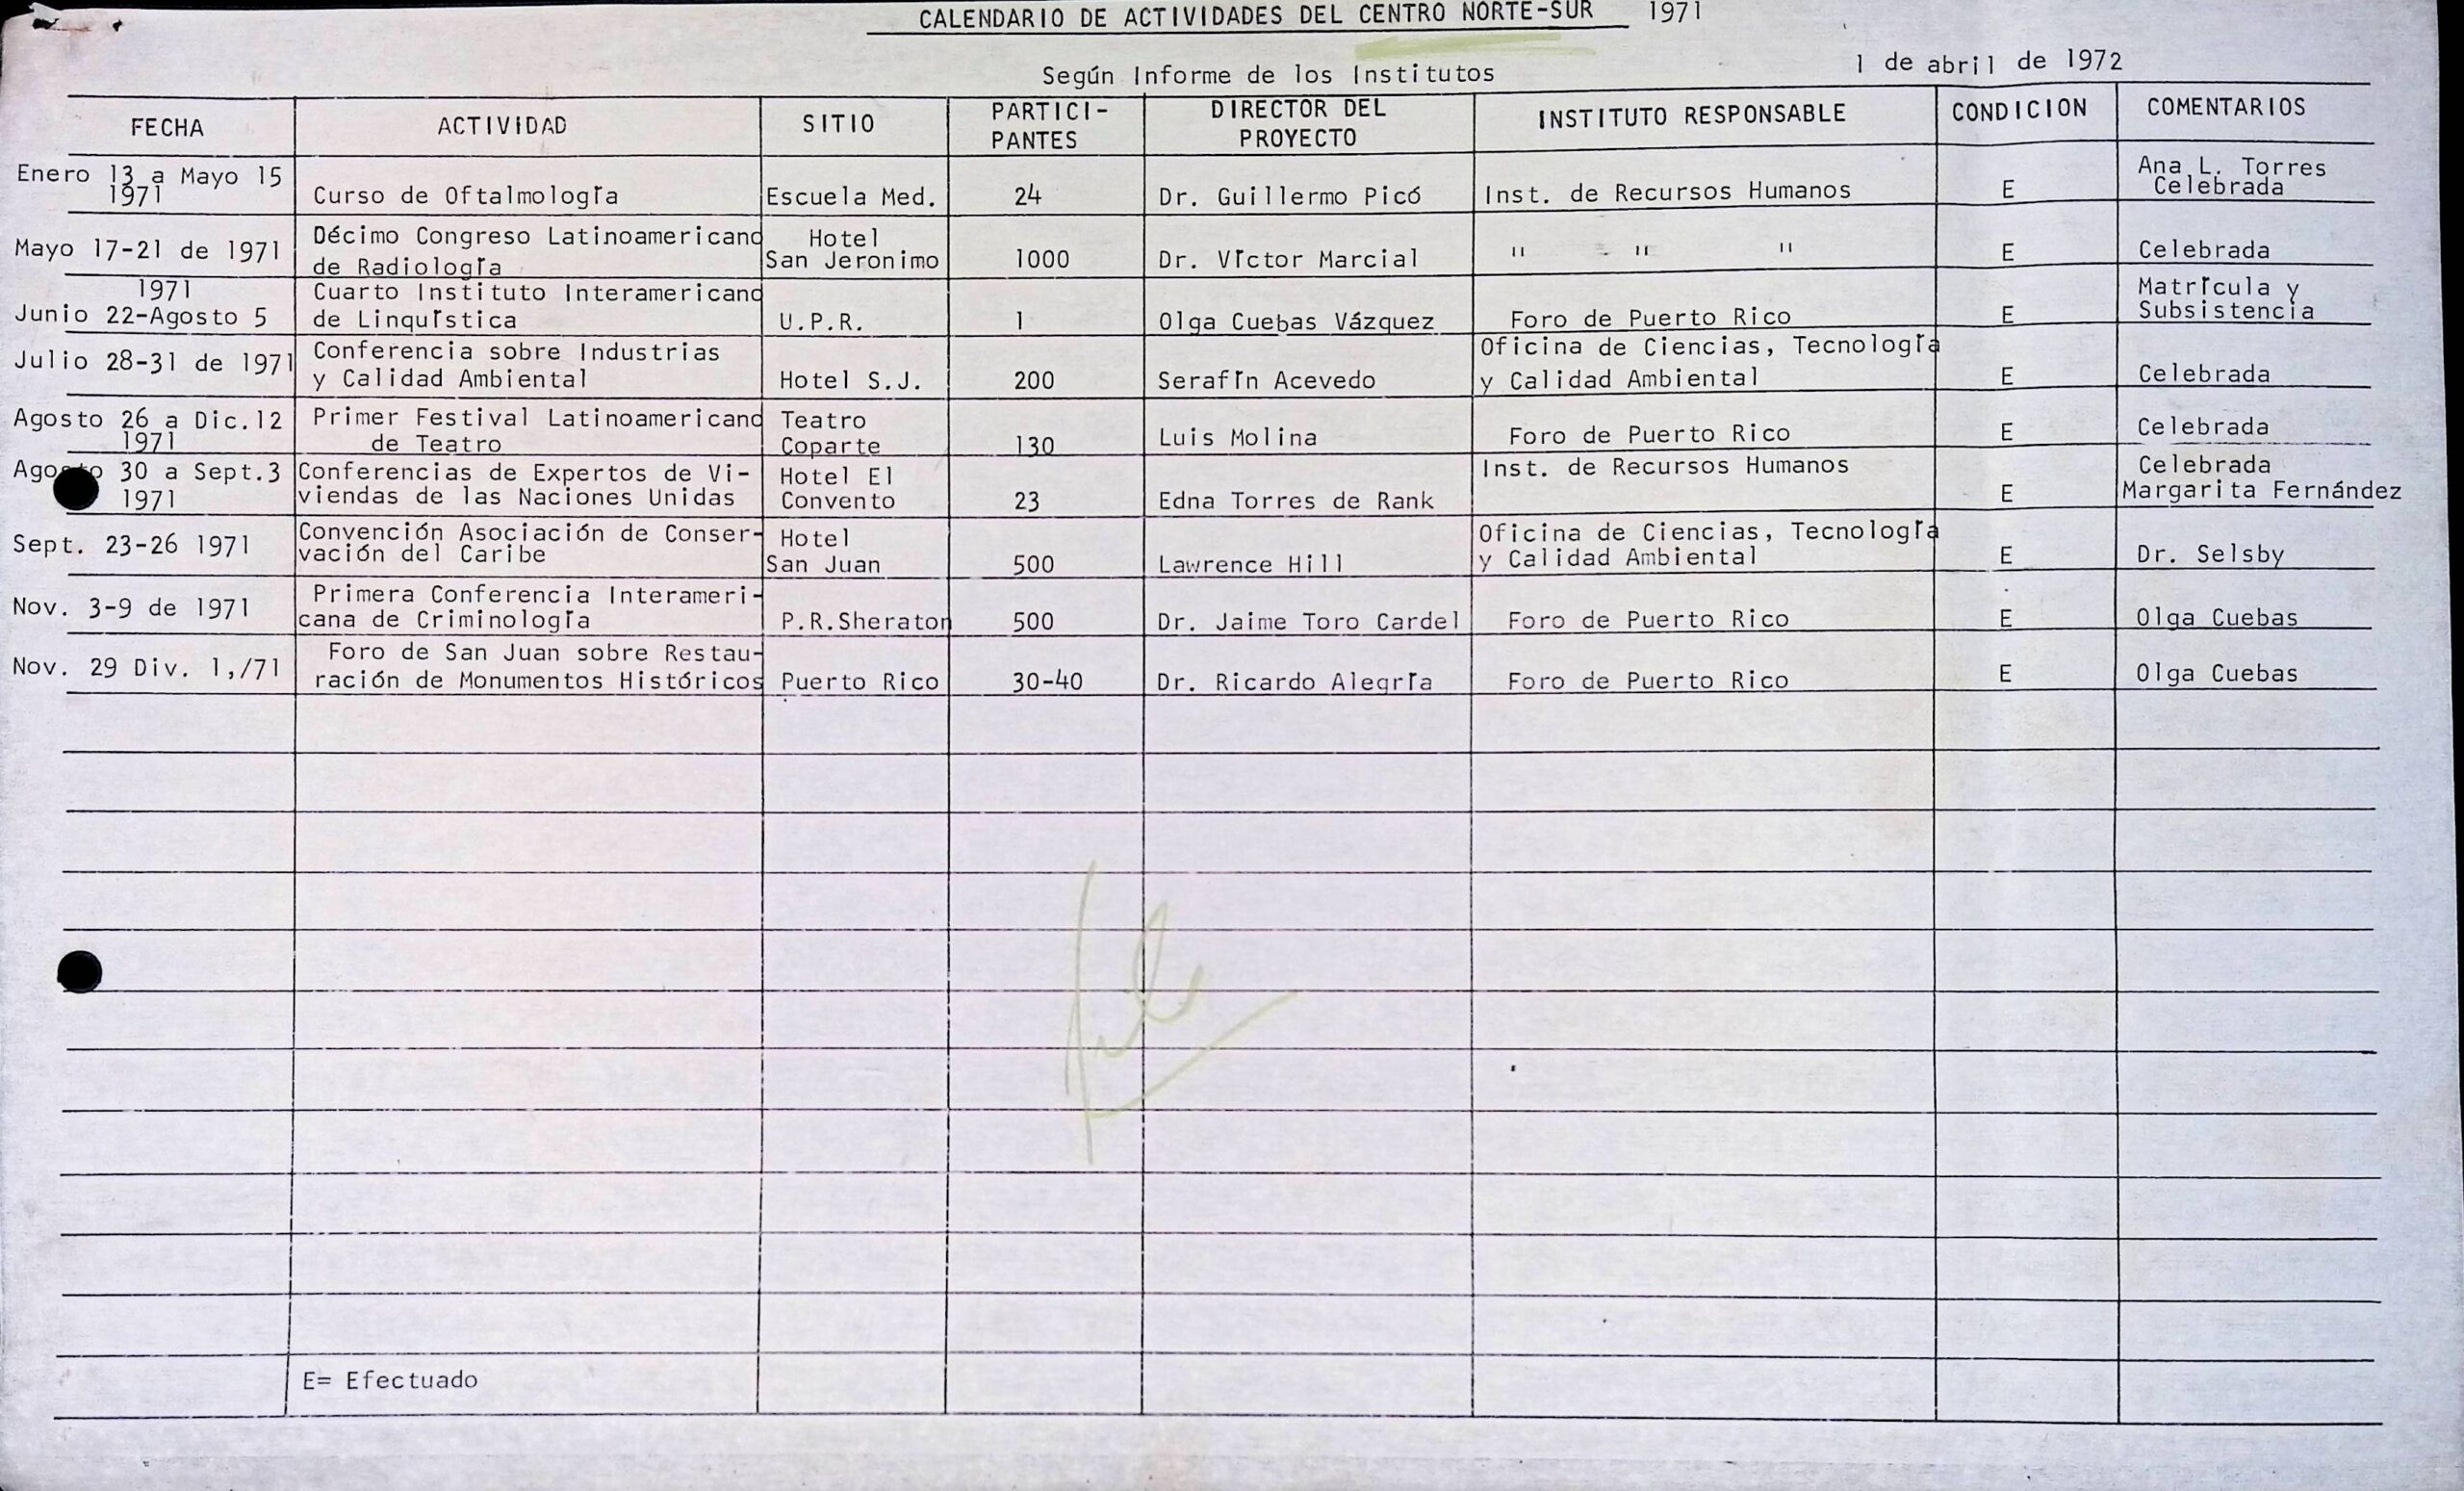 CALENDARIO DE ACTIVIDADES DEL CENTRO NORTE-SUR 1971
1 de abril de 1972
Según Informe de los Institutos
FECHA ACTIVIDAD SITIO PARTICI- PANTES DIRECTOR DEL PROYECTO INSTITUTO RESPONSABLE CONDICION COMENTARIOS
Enero 13 a Mayo 15
1971
Curso de Oftalmología
Escuela Med.
24
Dr. Guillermo Picó
Inst. de Recursos Humanos
E
Ana L. Torres
Celebrada
Mayo 17-21 de 1971
Décimo Congreso Latinoamericano
de Radiología
Hotel
San Jeronimo
1000
Dr. Víctor Marcial
" " "
E
Celebrada
1971
Junio 22-Agosto 5
Cuarto Instituto Interamericano
de Linquística
U.P.R.
1
Olga Cuebas Vázquez
Foro de Puerto Rico
E
Matrícula y
Subsistencia
Julio 28-31 de 1971
Conferencia sobre Industrias
y Calidad Ambiental
Hotel S.J.
200
Serafín Acevedo
Oficina de Ciencias, Tecnología
y Calidad Ambiental
E
Celebrada
Agosto 26 a Dic.12
1971
Primer Festival Latinoamericano
de Teatro
Teatro
Coparte
130
Luis Molina
Foro de Puerto Rico
E
Celebrada
Agosto 30 a Sept.3
1971
Conferencias de Expertos de Vi-
viendas de las Naciones Unidas
Hotel El
Convento
23
Edna Torres de Rank
Inst. de Recursos Humanos
E
Celebrada
Margarita Fernández
Sept. 23-26 1971
Convención Asociación de Conser-
vación del Caribe
Hotel
San Juan
500
Lawrence Hill
Oficina de Ciencias, Tecnología
y Calidad Ambiental
E
Dr. Selsby
Nov. 3-9 de 1971
Primera Conferencia Interameri-
cana de Criminología
P.R.Sheraton
500
Dr. Jaime Toro Cardel
Foro de Puerto Rico
E
Olga Cuebas
Nov. 29 Div. 1,/71
Foro de San Juan sobre Restau-
ración de Monumentos Históricos
Puerto Rico
30-40
Dr. Ricardo Alegría
Foro de Puerto Rico
E
Olga Cuebas
file
E= Efectuado